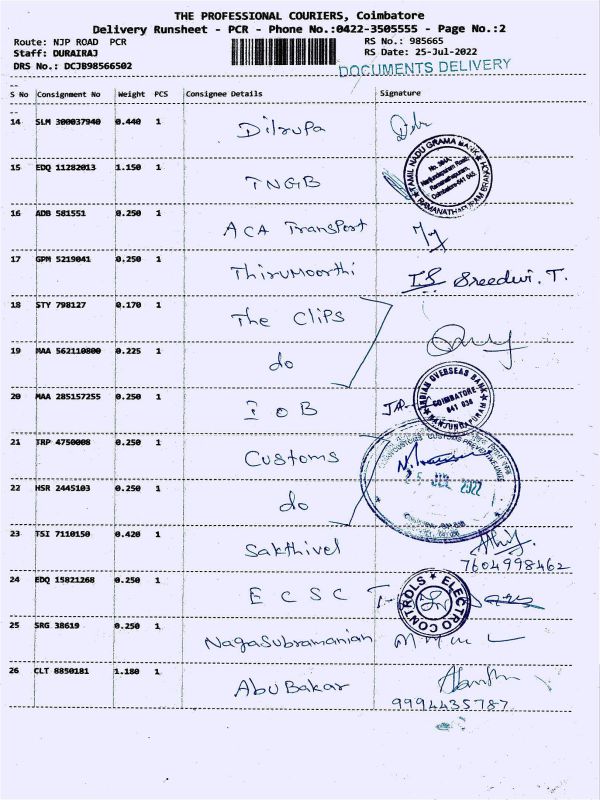 THE PROFESSIONAL COURIERS, Coimbatore
Delivery Runsheet - PCR - Phone No.:0422-3505555 - Page No.:2
Route: NJP ROAD PCR RS No.: 985665
Staff: DURAIRAJ RS Date: 25-Jul-2022
DRS No.: DCJB98566502
DOCUMENTS DELIVERY
S No Consignment No Weight PCS Consignee Details Signature
14 SLM 300037940 0.440 1 Dilrupa
15 EDQ 11282013 1.150 1 TNGB
TAMIL NADU GRAMA BANK
No. 30/4,
Nanjundapuram Road,
Ramanathapuram,
Coimbatore-641 045
RAMANATHAPURAM BRANCH
16 ADB 581551 0.250 1 ACA Transport
17 GPM 5219041 0.250 1 Thirumoorthi Sreedevi. T.
18 STY 798127 0.170 1 The Clips
19 MAA 562110800 0.225 1 do
20 MAA 285157255 0.250 1 IOB
INDIAN OVERSEAS BANK
COIMBATORE
641 036
NANJUNDAPURAM
21 TRP 4750008 0.250 1 Customs
25 JUL 2022
22 HSR 2445103 0.250 1 do
23 TSI 7110150 0.420 1 Sakthivel
7604998462
24 EDQ 15821268 0.250 1 ECSC
ELECTRO CONTROLS
25 SRG 38619 0.250 1 Nagasubramanian
26 CLT 8850181 1.180 1 Abu Bakar
9994435787